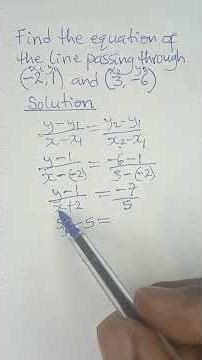 Find the equation of
the line passing through
x₁ y₁ x₂ y₂
(-2, 1) and (3, -6)
Solution
y-y₁/x-x₁ = y₂-y₁/x₂-x₁
y-1/x-(-2) = -6-1/3-(-2)
y-1/x+2 = -7/5
-5=